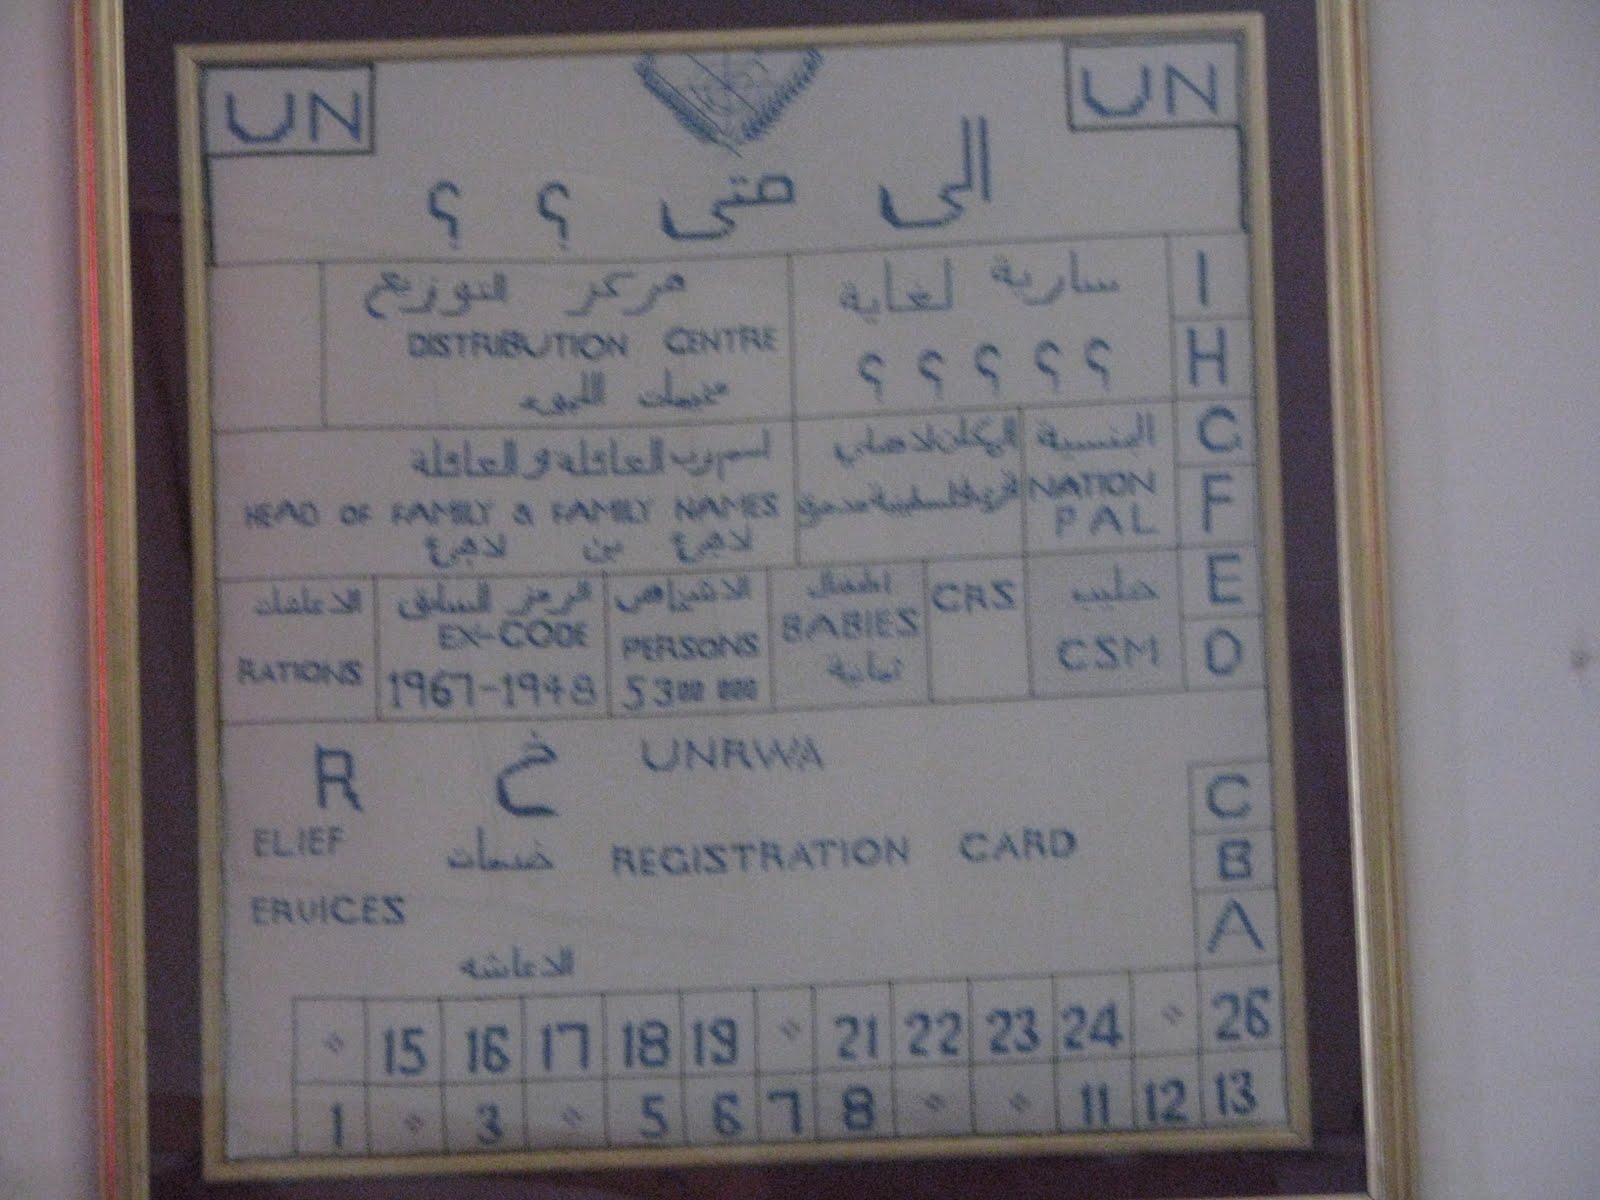 UN UN
الى متى ؟ ؟
سارية لغاية
؟ ؟ ؟ ؟ ؟
مركز التوزيع
DISTRIBUTION CENTRE
I
H
G
F
E
D
الجنسية
NATION
PAL
المكان الاصلي
اسم رب العائلة و العائلة
HEAD OF FAMILY & FAMILY NAMES
لاجئ بن لاجئ
حليب
CSM
CRS
اطفال
BABIES
ثمانية
الاشخاص
PERSONS
5300 000
الرمز السابق
EX-CODE
1967-1948
الاعاشات
RATIONS
R خ UNRWA
ELIEF خدمات REGISTRATION CARD
ERVICES
الاعاشه
C
B
A
" 15 16 17 18 19 " 21 22 23 24 " 26
1 " 3 " 5 6 7 8 " " 11 12 13